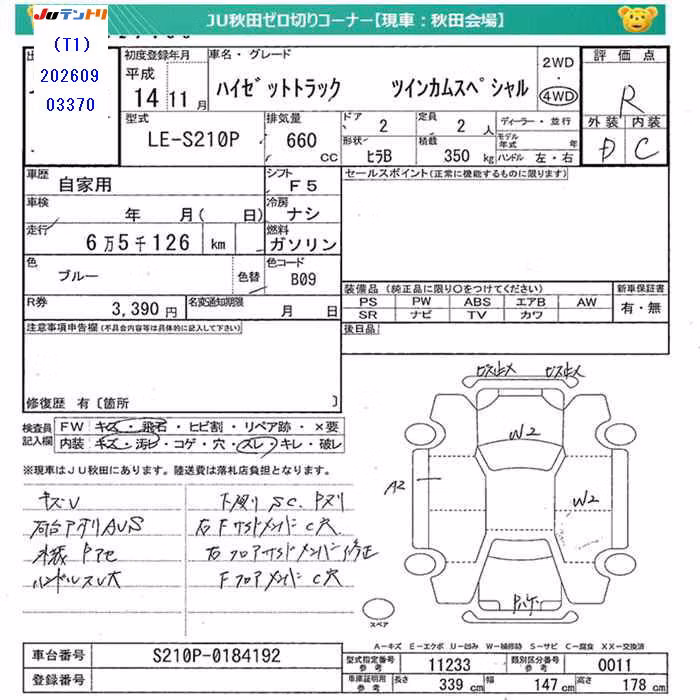 JUテントリ
JU秋田ゼロ切りコーナー【現車:秋田会場】
(T1)
202609
03370
初度登録年月
平成
14 11 月
車名・グレード
ハイゼットトラック ツインカムスペシャル
2WD
4WD
評価点
R
外装 内装
D C
型式
LE-S210P
排気量
660 cc
ドア 2
定員 2 人
ディーラー・並行
形状 ヒラB
積載 350 kg
モデル年式 年
ハンドル 左・右
車歴
自家用
シフト
F5
セールスポイント(正常に機能するものに限ります)
車検
年 月( 日)
冷房
ナシ
走行
6万5千126 km
燃料
ガソリン
色
ブルー
色替
色コード
B09
装備品(純正品に限り○をつけてください)
新車保証書
PS PW ABS エアB AW
有・無
SR ナビ TV カワ
R券
3,390円
名変通知期限
月 日
後日品
注意事項申告欄(不具合内容等は具体的に記入して下さい)
修復歴 有〔箇所 〕
検査員
記入欄
FW キズ・飛石・ヒビ割・リペア跡・×要
内装 キズ・汚レ・コゲ・穴・スレ・キレ・破レ
※現車はJU秋田にあります。陸送費は落札店負担となります。
キズU
下廻り SC. Pヌリ
荷台アオリAUS
右Fサイドメンバー C穴
ハンドルスレ大
Fフロアメンバー C穴
W2
A2
W2
スペア
A-キズ E-エクボ U-凹み W-補修跡 S-サビ C-腐食 XX-交換済
車台番号
S210P-0184192
登録番号
型式指定番号
参考
11233
類別区分番号
参考
0011
車庫証明用
参考
長さ 339 cm
幅 147 cm
高さ 178 cm